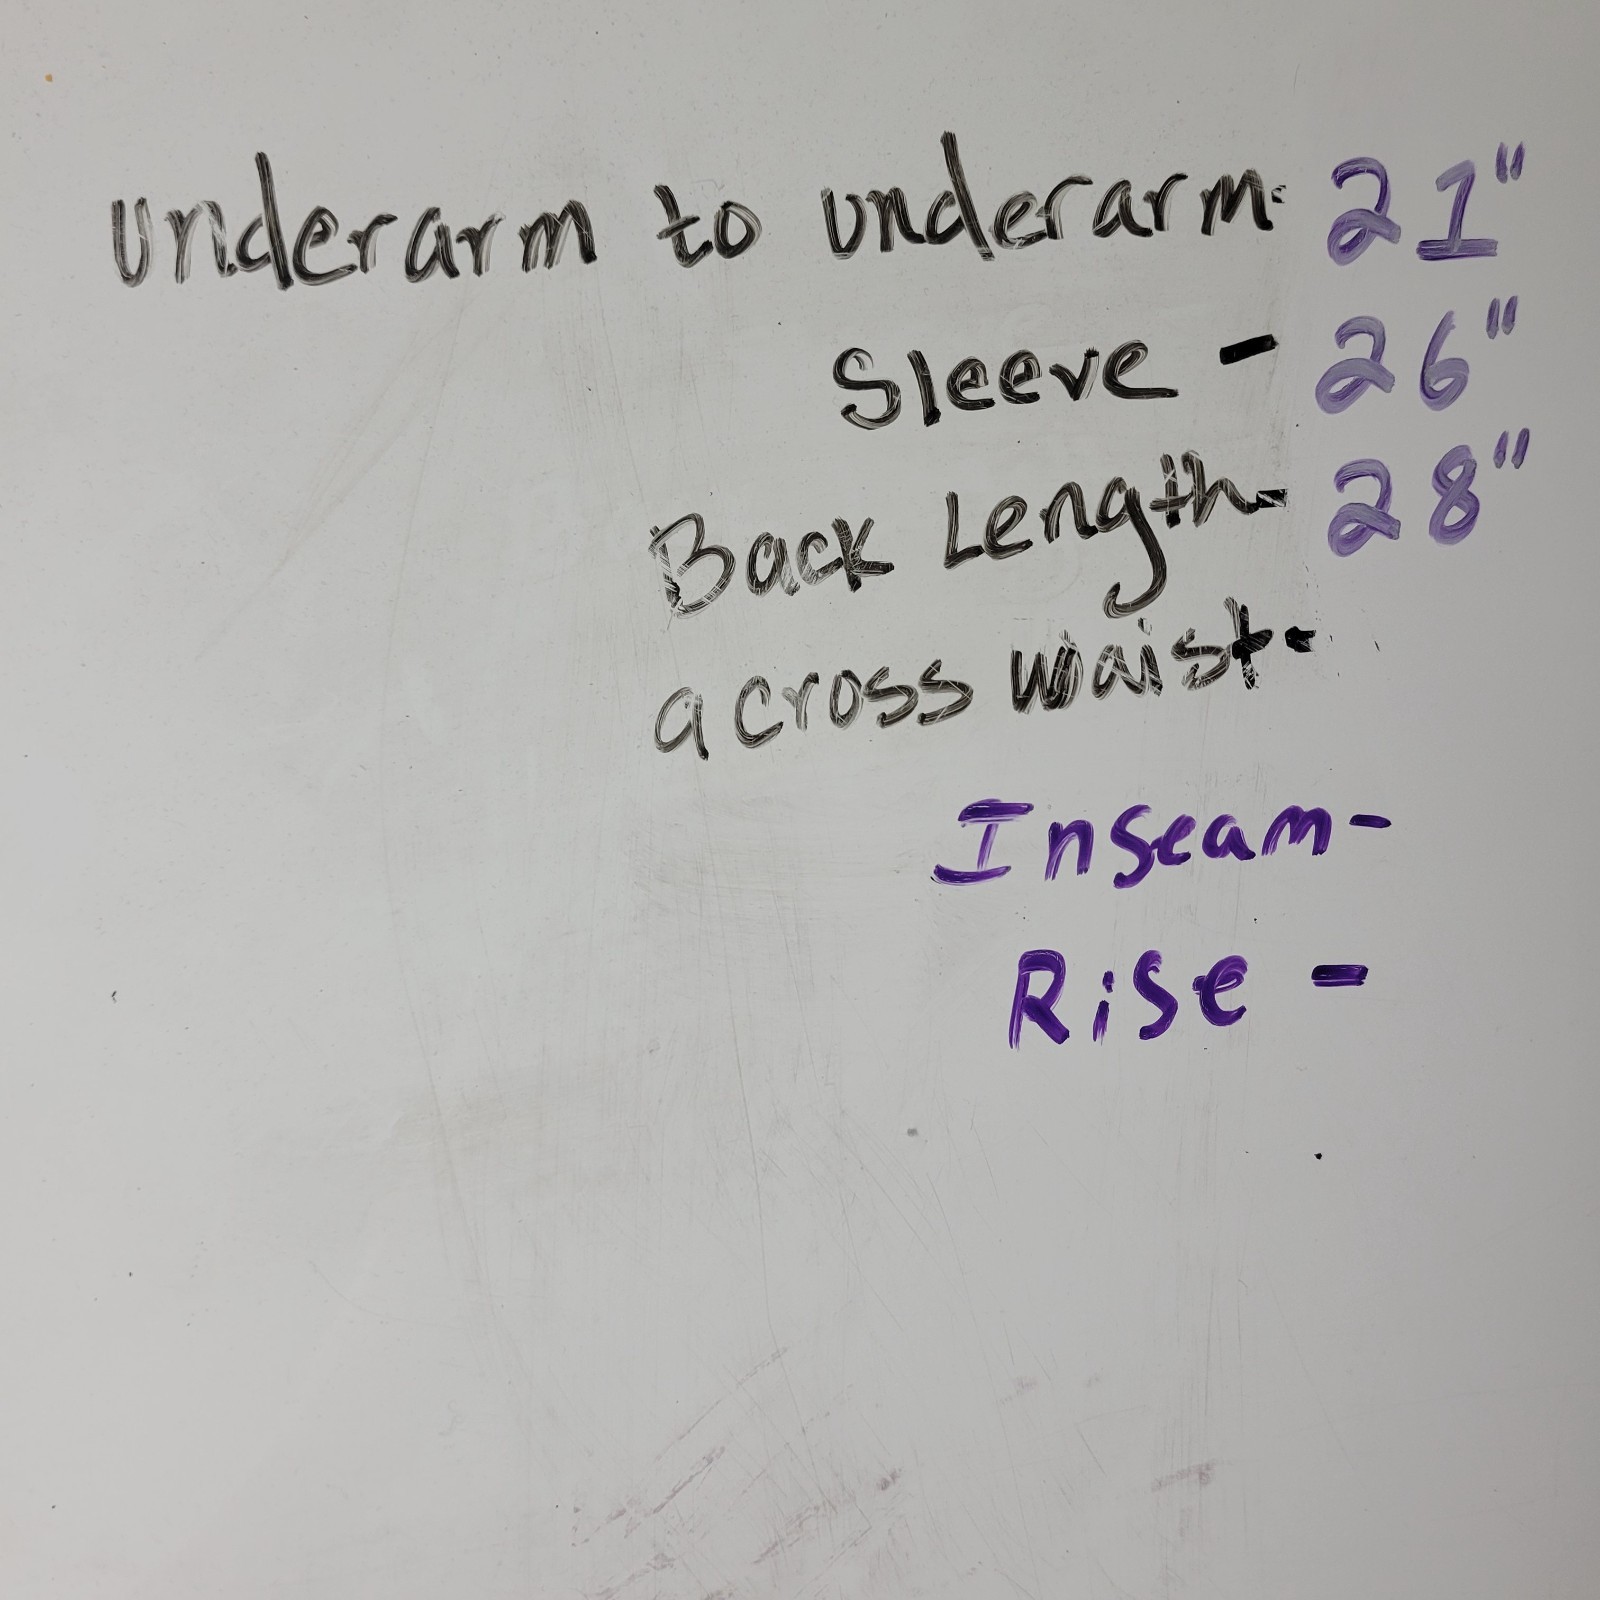 underarm to underarm- 21"
Sleeve - 26"
Back Length- 28"
across waist-
Inseam-
Rise -